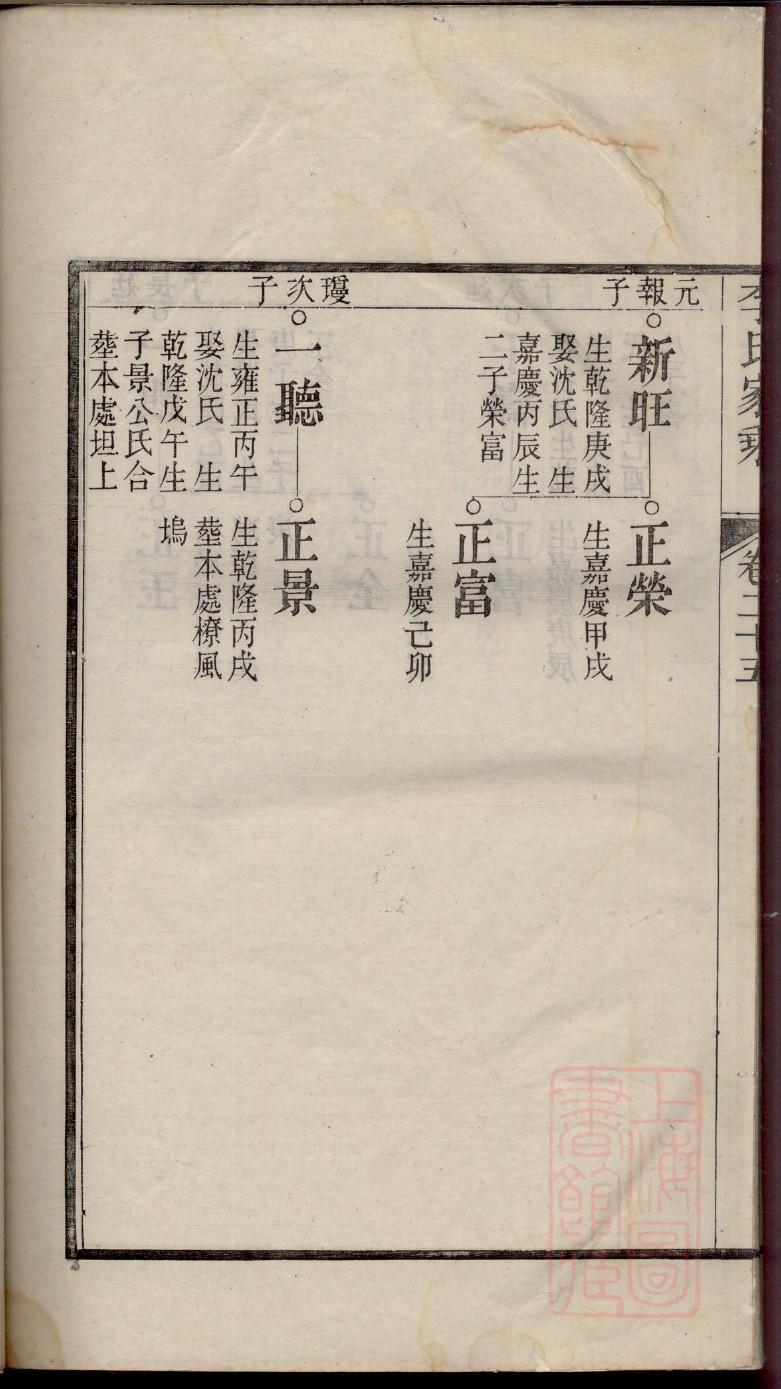 李氏家乘
卷二十五
元報子
新旺
生乾隆庚戌
娶沈氏 生
嘉慶丙辰生
二子榮富
正榮
生嘉慶甲戌
正富
生嘉慶己卯
璦次子
一聽
生雍正丙午
娶沈氏 生
乾隆戊午生
子景公氏合
塟本處坦上
正景
生乾隆丙戌
塟本處橑風
塢
上海圖
書館藏